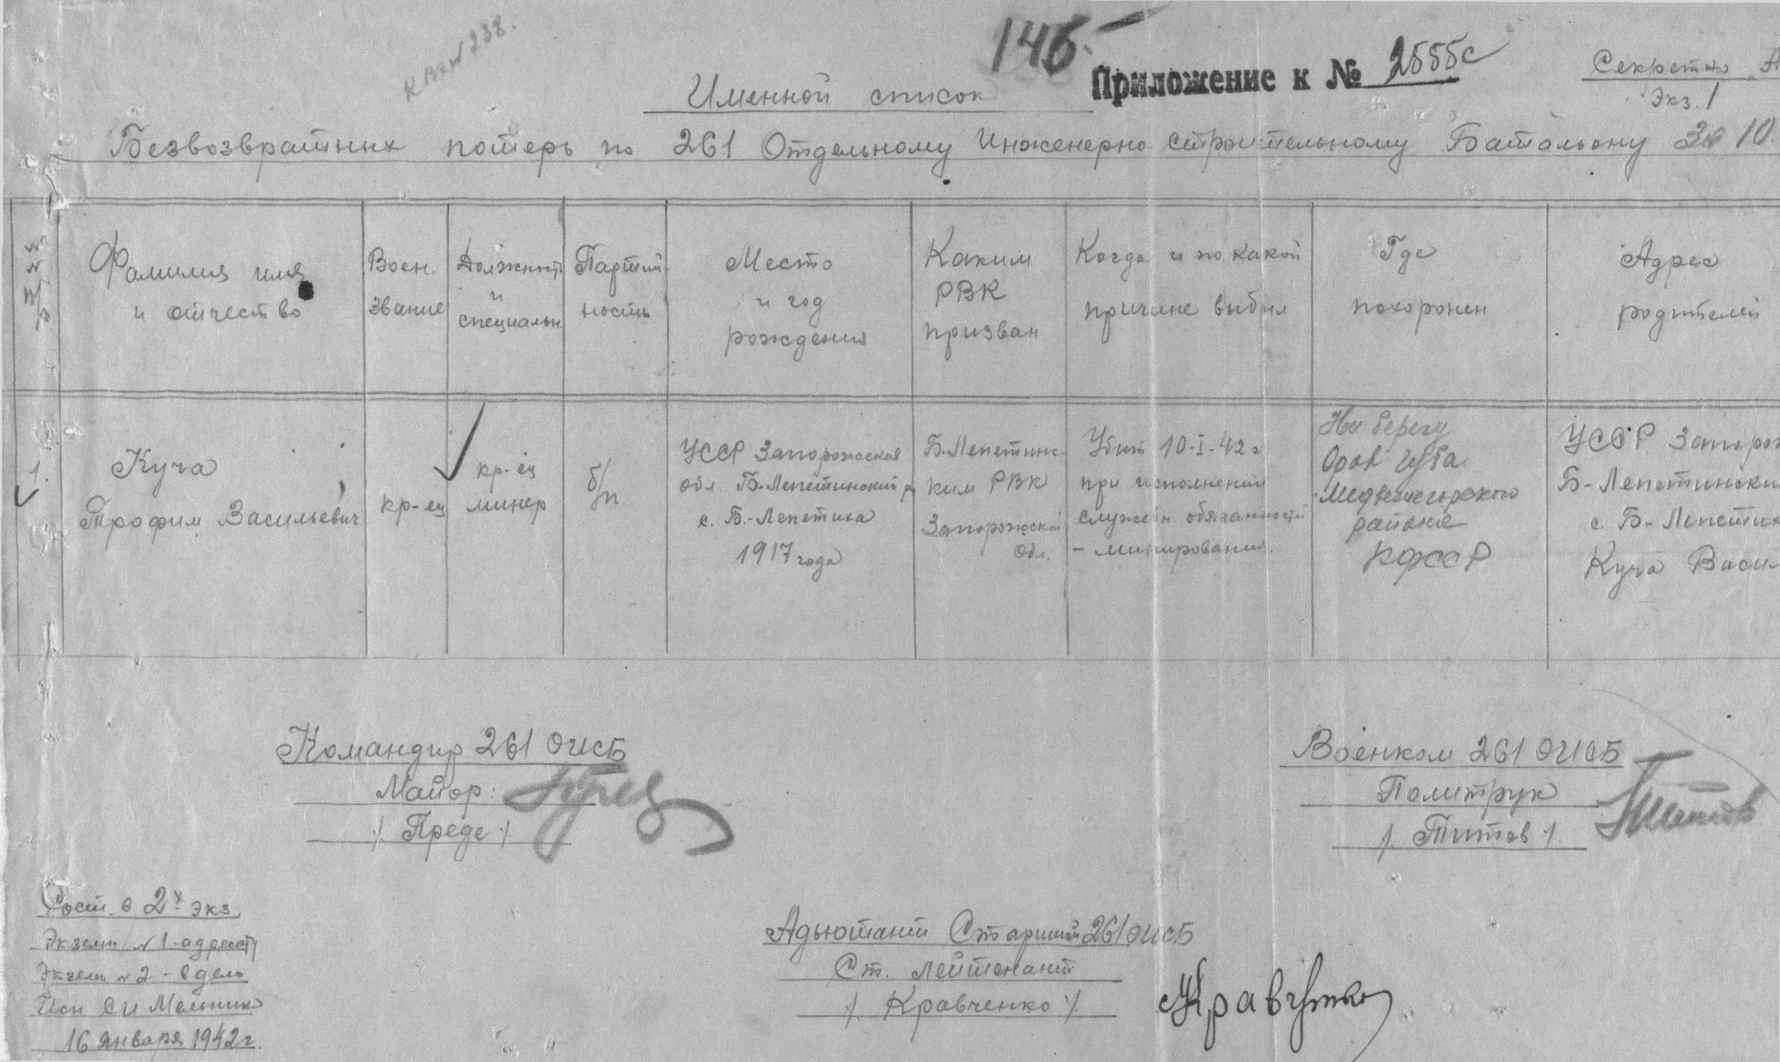 К Вх № 238.
146
Приложение к № 2555с
Секретно
Экз. 1
Именной список
Безвозвратных потерь по 261 Отдельному Инженерно строительному Батальону За 10.
№№ п/п
Фамилия имя
и отчество
Воен.
звание
Должност
и
специальн
Партий
ность
Место
и год
рождения
Каким
РВК
призван
Когда и по какой
причине выбыл
Где
похоронен
Адрес
родителей
1.
Куча
Трофим Васильевич
кр-ец
кр-ец
минер
б/п
УССР Запорожская
обл. Б-Лепетинский р
с. Б.-Лепетиха
1917 года
Б-Лепетинс-
ким РВК
Запорожской
обл.
Убит 10-I-42 г
при исполнении
служебн. обязанностей
- минирования.
На берегу
Орев губа
Медвежегорского
района
КФССР
УССР Запорож
Б-Лепетински
с. Б-Лепетих
Куча Васил
Командир 261 ОИСБ
Майор:
/. Преде /
Военком 261 ОИСБ
Политрук
/. Титов /.
Титов
Сост. в 2х экз.
Экземп № 1-адресату
Экземп № 2 - в дело
Исп СИ Мельник
16 января 1942 г.
Адьютант Старший 261 ОИСБ
Ст. лейтенант
/. Кравченко /.
Кравченко